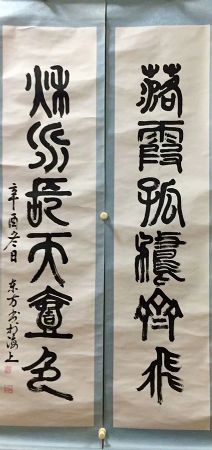 落霞孤鶩齊飛
秋水長天壹色
辛酉冬日
東方書於海上